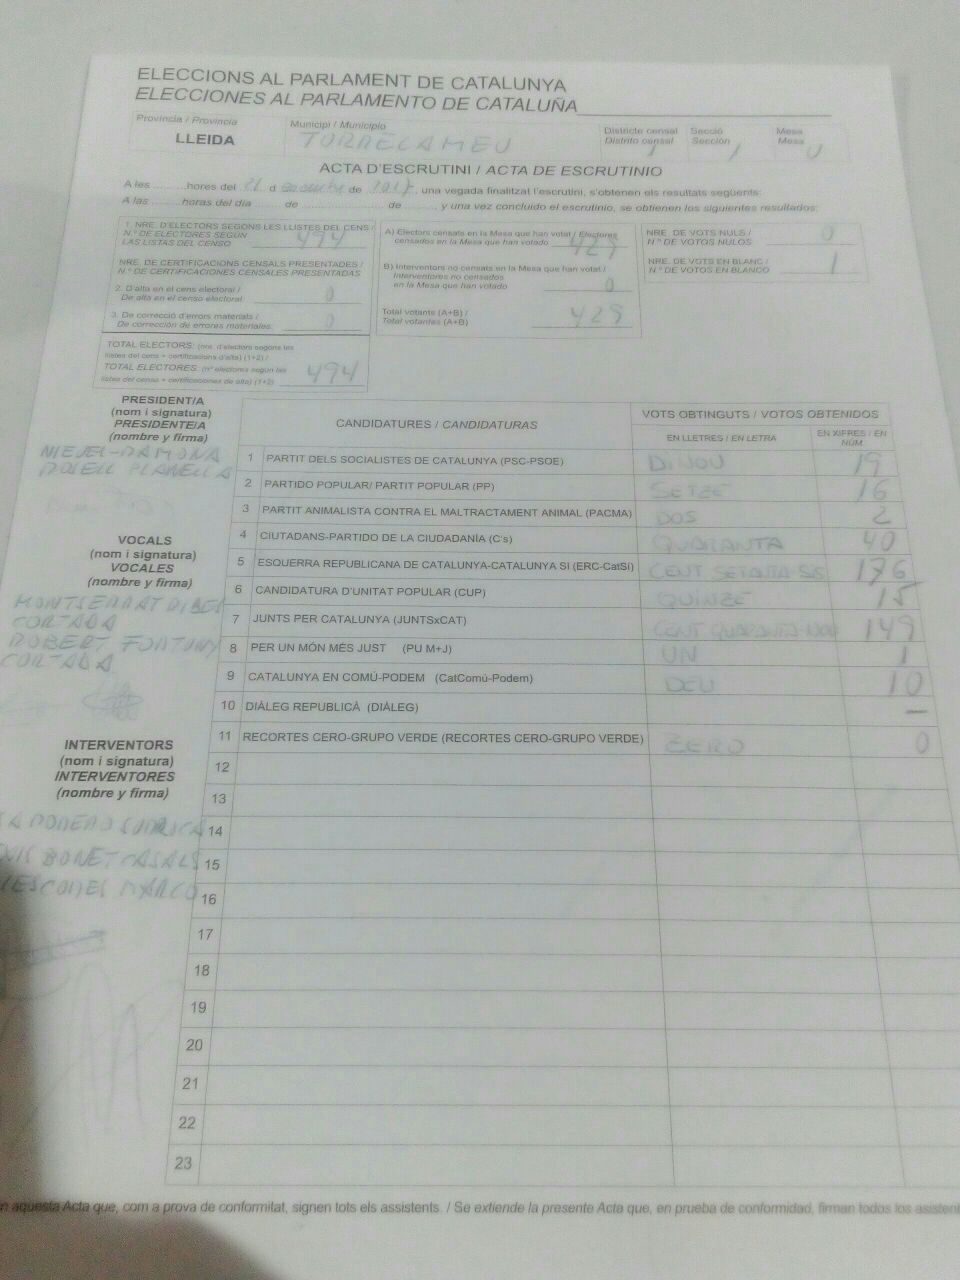 ELECCIONS AL PARLAMENT DE CATALUNYA
ELECCIONES AL PARLAMENTO DE CATALUÑA
Província / Provincia
LLEIDA
Municipi / Municipio
TORRELAMEU
Districte censal
Distrito censal
1
Secció
Sección
1
Mesa
Mesa
U
ACTA D'ESCRUTINI / ACTA DE ESCRUTINIO
A les ..........hores del 21 d desembre de 2017, una vegada finalitzat l'escrutini, s'obtenen els resultats següents:
A las ..........horas del día ....... de ........................ de ........, y una vez concluido el escrutinio, se obtienen los siguientes resultados:
1. NRE. D'ELECTORS SEGONS LES LLISTES DEL CENS /
N.º DE ELECTORES SEGÚN
LAS LISTAS DEL CENSO
494
NRE. DE CERTIFICACIONS CENSALS PRESENTADES /
N.º DE CERTIFICACIONES CENSALES PRESENTADAS
2. D'alta en el cens electoral /
De alta en el censo electoral
0
3. De correcció d'errors materials /
De corrección de errores materiales:
0
TOTAL ELECTORS: (nre. d'electors segons les
llistes del cens + certificacions d'alta) (1+2) /
TOTAL ELECTORES: (nº electores según las
listas del censo + certificaciones de alta) (1+2)
494
A) Electors censats en la Mesa que han votat / Electores
censados en la Mesa que han votado
429
B) Interventors no censats en la Mesa que han votat /
Interventores no censados
en la Mesa que han votado
0
Total votants (A+B) /
Total votantes (A+B)
429
NRE. DE VOTS NULS /
N.º DE VOTOS NULOS
0
NRE. DE VOTS EN BLANC /
N.º DE VOTOS EN BLANCO
1
PRESIDENT/A
(nom i signatura)
PRESIDENTE/A
(nombre y firma)
PLANELLA
VOCALS
(nom i signatura)
VOCALES
(nombre y firma)
MONTSERRAT RIBES
CORTADA
ROBERT FONTANY
CORTADA
INTERVENTORS
(nom i signatura)
INTERVENTORES
(nombre y firma)
BONET CASALS
MARCO
CANDIDATURES / CANDIDATURAS
VOTS OBTINGUTS / VOTOS OBTENIDOS
EN LLETRES / EN LETRA
EN XIFRES / EN NÚM.
1 PARTIT DELS SOCIALISTES DE CATALUNYA (PSC-PSOE) DINOU 19
2 PARTIDO POPULAR/ PARTIT POPULAR (PP) SETZE 16
3 PARTIT ANIMALISTA CONTRA EL MALTRACTAMENT ANIMAL (PACMA) DOS 2
4 CIUTADANS-PARTIDO DE LA CIUDADANÍA (C's) QUARANTA 40
5 ESQUERRA REPUBLICANA DE CATALUNYA-CATALUNYA SÍ (ERC-CatSí) CENT SETANTA SIS 176
6 CANDIDATURA D'UNITAT POPULAR (CUP) QUINZE 15
7 JUNTS PER CATALUNYA (JUNTSxCAT) CENT QUARANTA-NOU 149
8 PER UN MÓN MÉS JUST (PU M+J) UN 1
9 CATALUNYA EN COMÚ-PODEM (CatComú-Podem) DEU 10
10 DIÀLEG REPUBLICÀ (DIÀLEG) —
11 RECORTES CERO-GRUPO VERDE (RECORTES CERO-GRUPO VERDE) ZERO 0
12
13
14
15
16
17
18
19
20
21
22
23
n aquesta Acta que, com a prova de conformitat, signen tots els assistents. / Se extiende la presente Acta que, en prueba de conformidad, firman todos los asistent